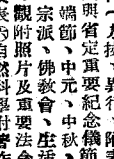 與省定重要紀念儀節
端節、中元、中秋、
宗派、佛教會、生活
觀附照片及重要法會
自然科學附